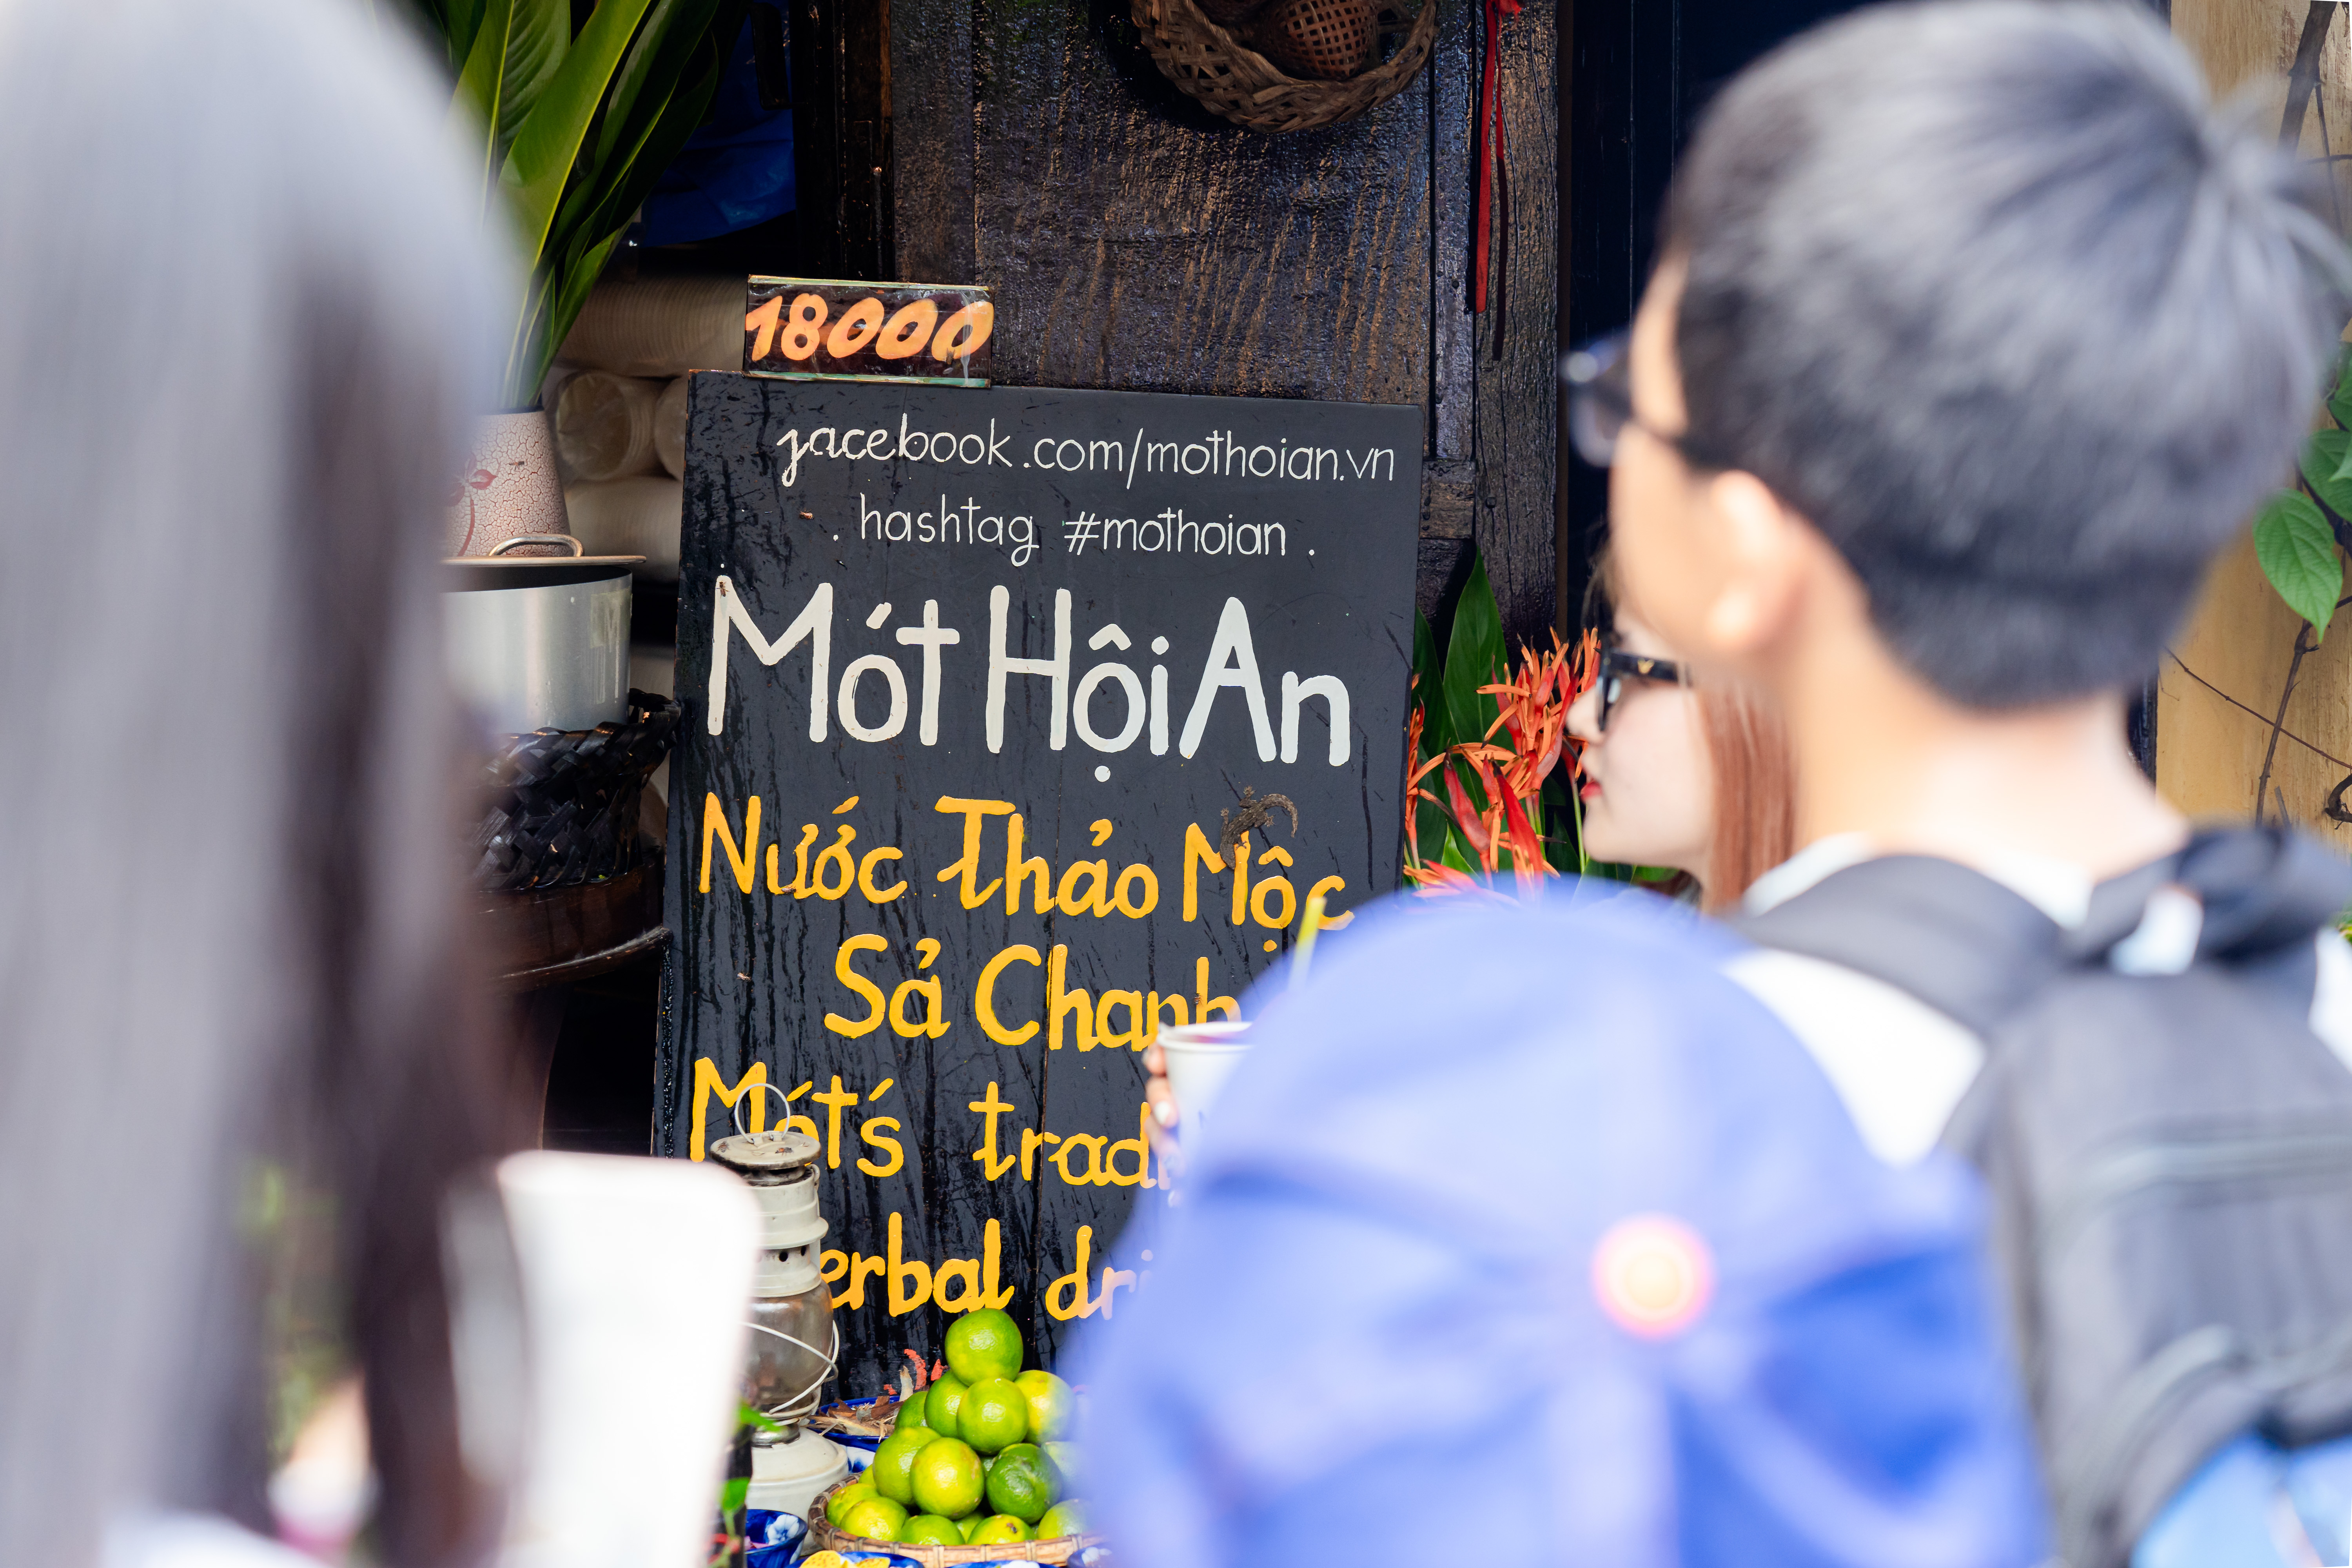 18000
facebook.com/mothoian.vn
. hashtag #mothoian .
Mót Hội An
Nước Thảo Mộc
Sả Chanh
Mót's trad
erbal dri